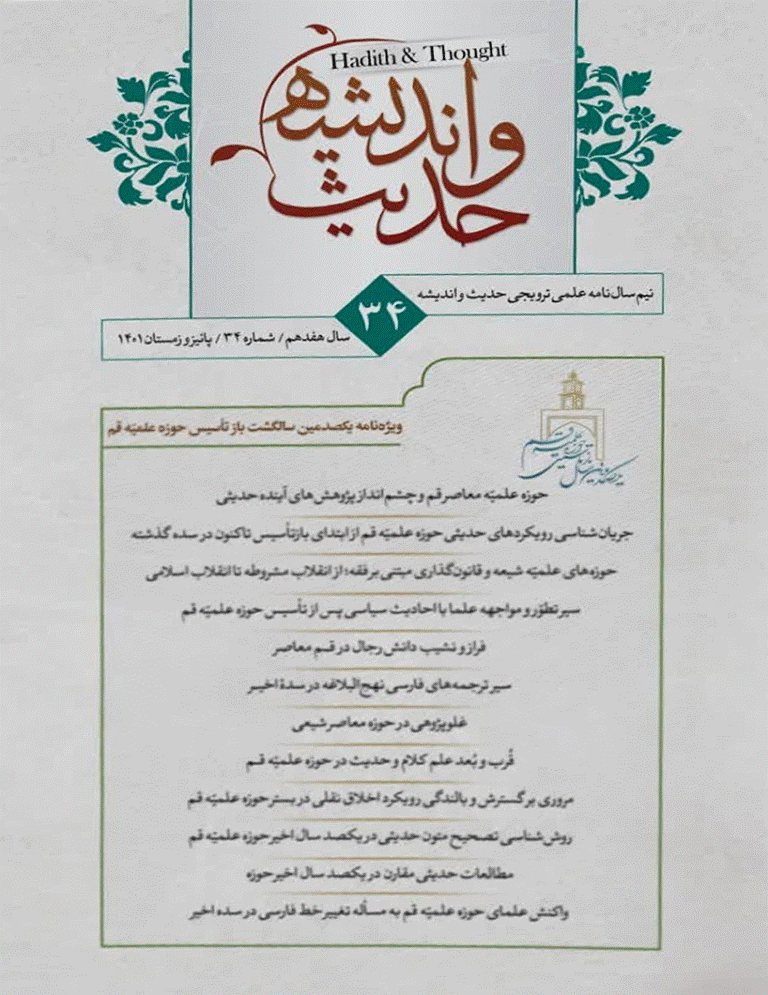 Hadith & Thought
حدیث و اندیشه
نیم سال‌نامه علمی ترویجی حدیث و اندیشه
۳۴
سال هفدهم / شماره ۳۴ / پائیز و زمستان ۱۴۰۱
ویژه‌نامه یکصدمین سالگشت باز تأسیس حوزه علمیّه قم
حوزه علمیّه معاصر قم و چشم انداز پژوهش‌های آینده حدیثی
جریان شناسی رویکردهای حدیثی حوزه علمیّه قم از ابتدای بازتأسیس تاکنون در سده گذشته
حوزه‌های علمیّه شیعه و قانون‌گذاری مبتنی بر فقه؛ از انقلاب مشروطه تا انقلاب اسلامی
سیر تطوّر و مواجهه علما با احادیث سیاسی پس از تأسیس حوزه علمیّه قم
فراز و نشیب دانش رجال در قم معاصر
سیر ترجمه‌های فارسی نهج‌البلاغه در سدۀ اخیر
غلوپژوهی در حوزه معاصر شیعی
قُرب و بُعد علم کلام و حدیث در حوزه علمیّه قم
مروری بر گسترش و بالندگی رویکرد اخلاق نقلی در بستر حوزه علمیّه قم
روش‌شناسی تصحیح متون حدیثی در یکصد سال اخیر حوزه علمیّه قم
مطالعات حدیثی مقارن در یکصد سال اخیر حوزه
واکنش علمای حوزه علمیّه قم به مسأله تغییر خط فارسی در سده اخیر